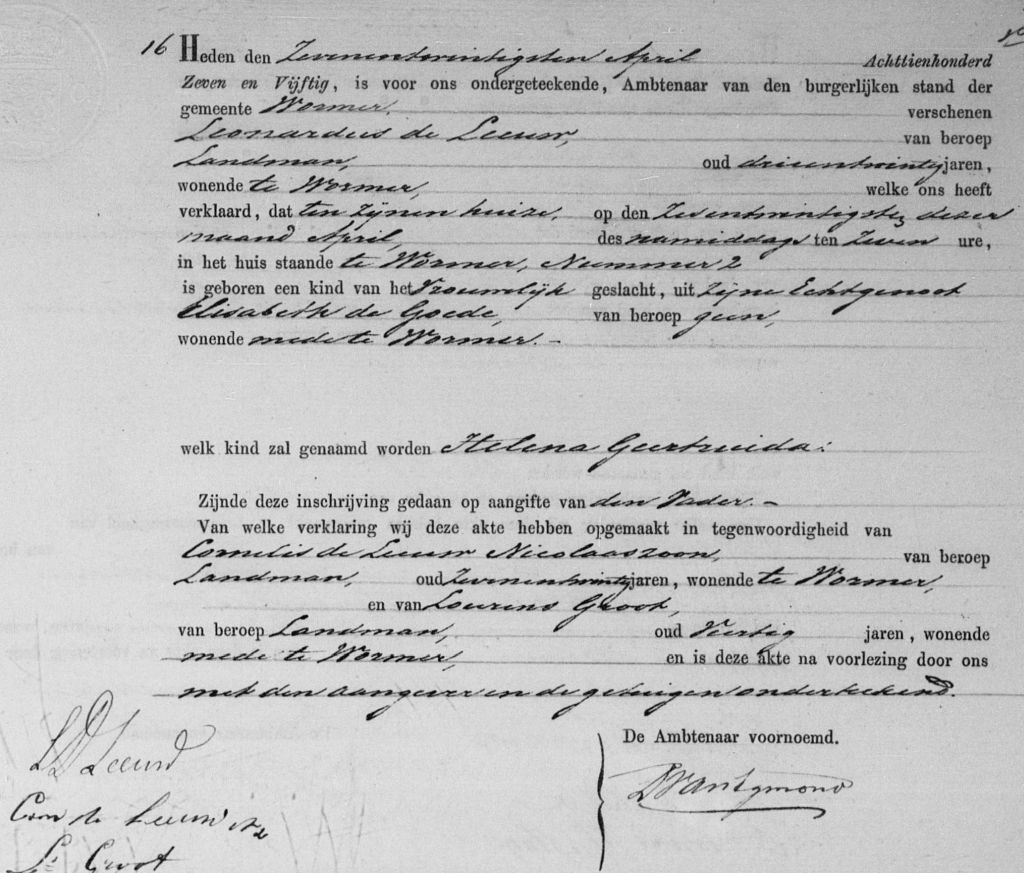 16 Heden den Zevenentwintigsten April Achttienhonderd
Zeven en Vijftig, is voor ons ondergeteekende, Ambtenaar van den burgerlijken stand der
gemeente Wormer, verschenen
Leonardus de Leeuw, van beroep
Landman, oud drieentwintig jaren,
wonende te Wormer, welke ons heeft
verklaard, dat ten zijnen huize, op den Zeventwintigsten dezer
maand April, des namiddags ten Zeven ure,
in het huis staande te Wormer, Nummer 2
is geboren een kind van het Vrouwelijk geslacht, uit zijne Echtgenoot
Elisabeth de Goede, van beroep geen,
wonende mede te Wormer. -
welk kind zal genaamd worden Helena Geertruida:
Zijnde deze inschrijving gedaan op aangifte van den Vader. -
Van welke verklaring wij deze akte hebben opgemaakt in tegenwoordigheid van
Cornelis de Leeuw Nicolaaszoon, van beroep
Landman, oud Zevenentwintig jaren, wonende te Wormer,
en van Lourens Groot,
van beroep Landman, oud Veertig jaren, wonende
mede te Wormer, en is deze akte na voorlezing door ons
met den aangever en de getuigen onderteekend.
De Ambtenaar voornoemd.
L D Leeuw
Corn de Leeuw Nz
Ls Groot